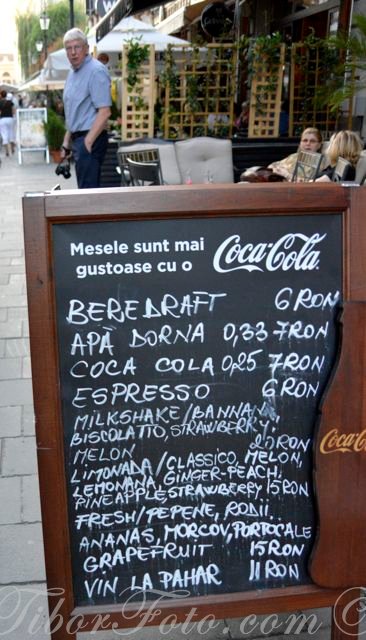 Mesele sunt mai
gustoase cu o
Coca-Cola
BERE DRAFT 6 RON
APĂ DORNA 0,33 7RON
COCA COLA 0,25 7RON
ESPRESSO 6 RON
MILKSHAKE/BANNANA,
BISCOLATTO, STRAWBERRY,
MELON 20 RON
LIMONADA/CLASSICO, MELON,
LEMONANA, GINGER-PEACH,
PINEAPPLE, STRAWBERRY 15 RON
FRESH/PEPENE, RODII,
ANANAS, MORCOV, PORTOCALE
GRAPEFRUIT 15 RON
VIN LA PAHAR 11 RON
TiborFoto.com ©